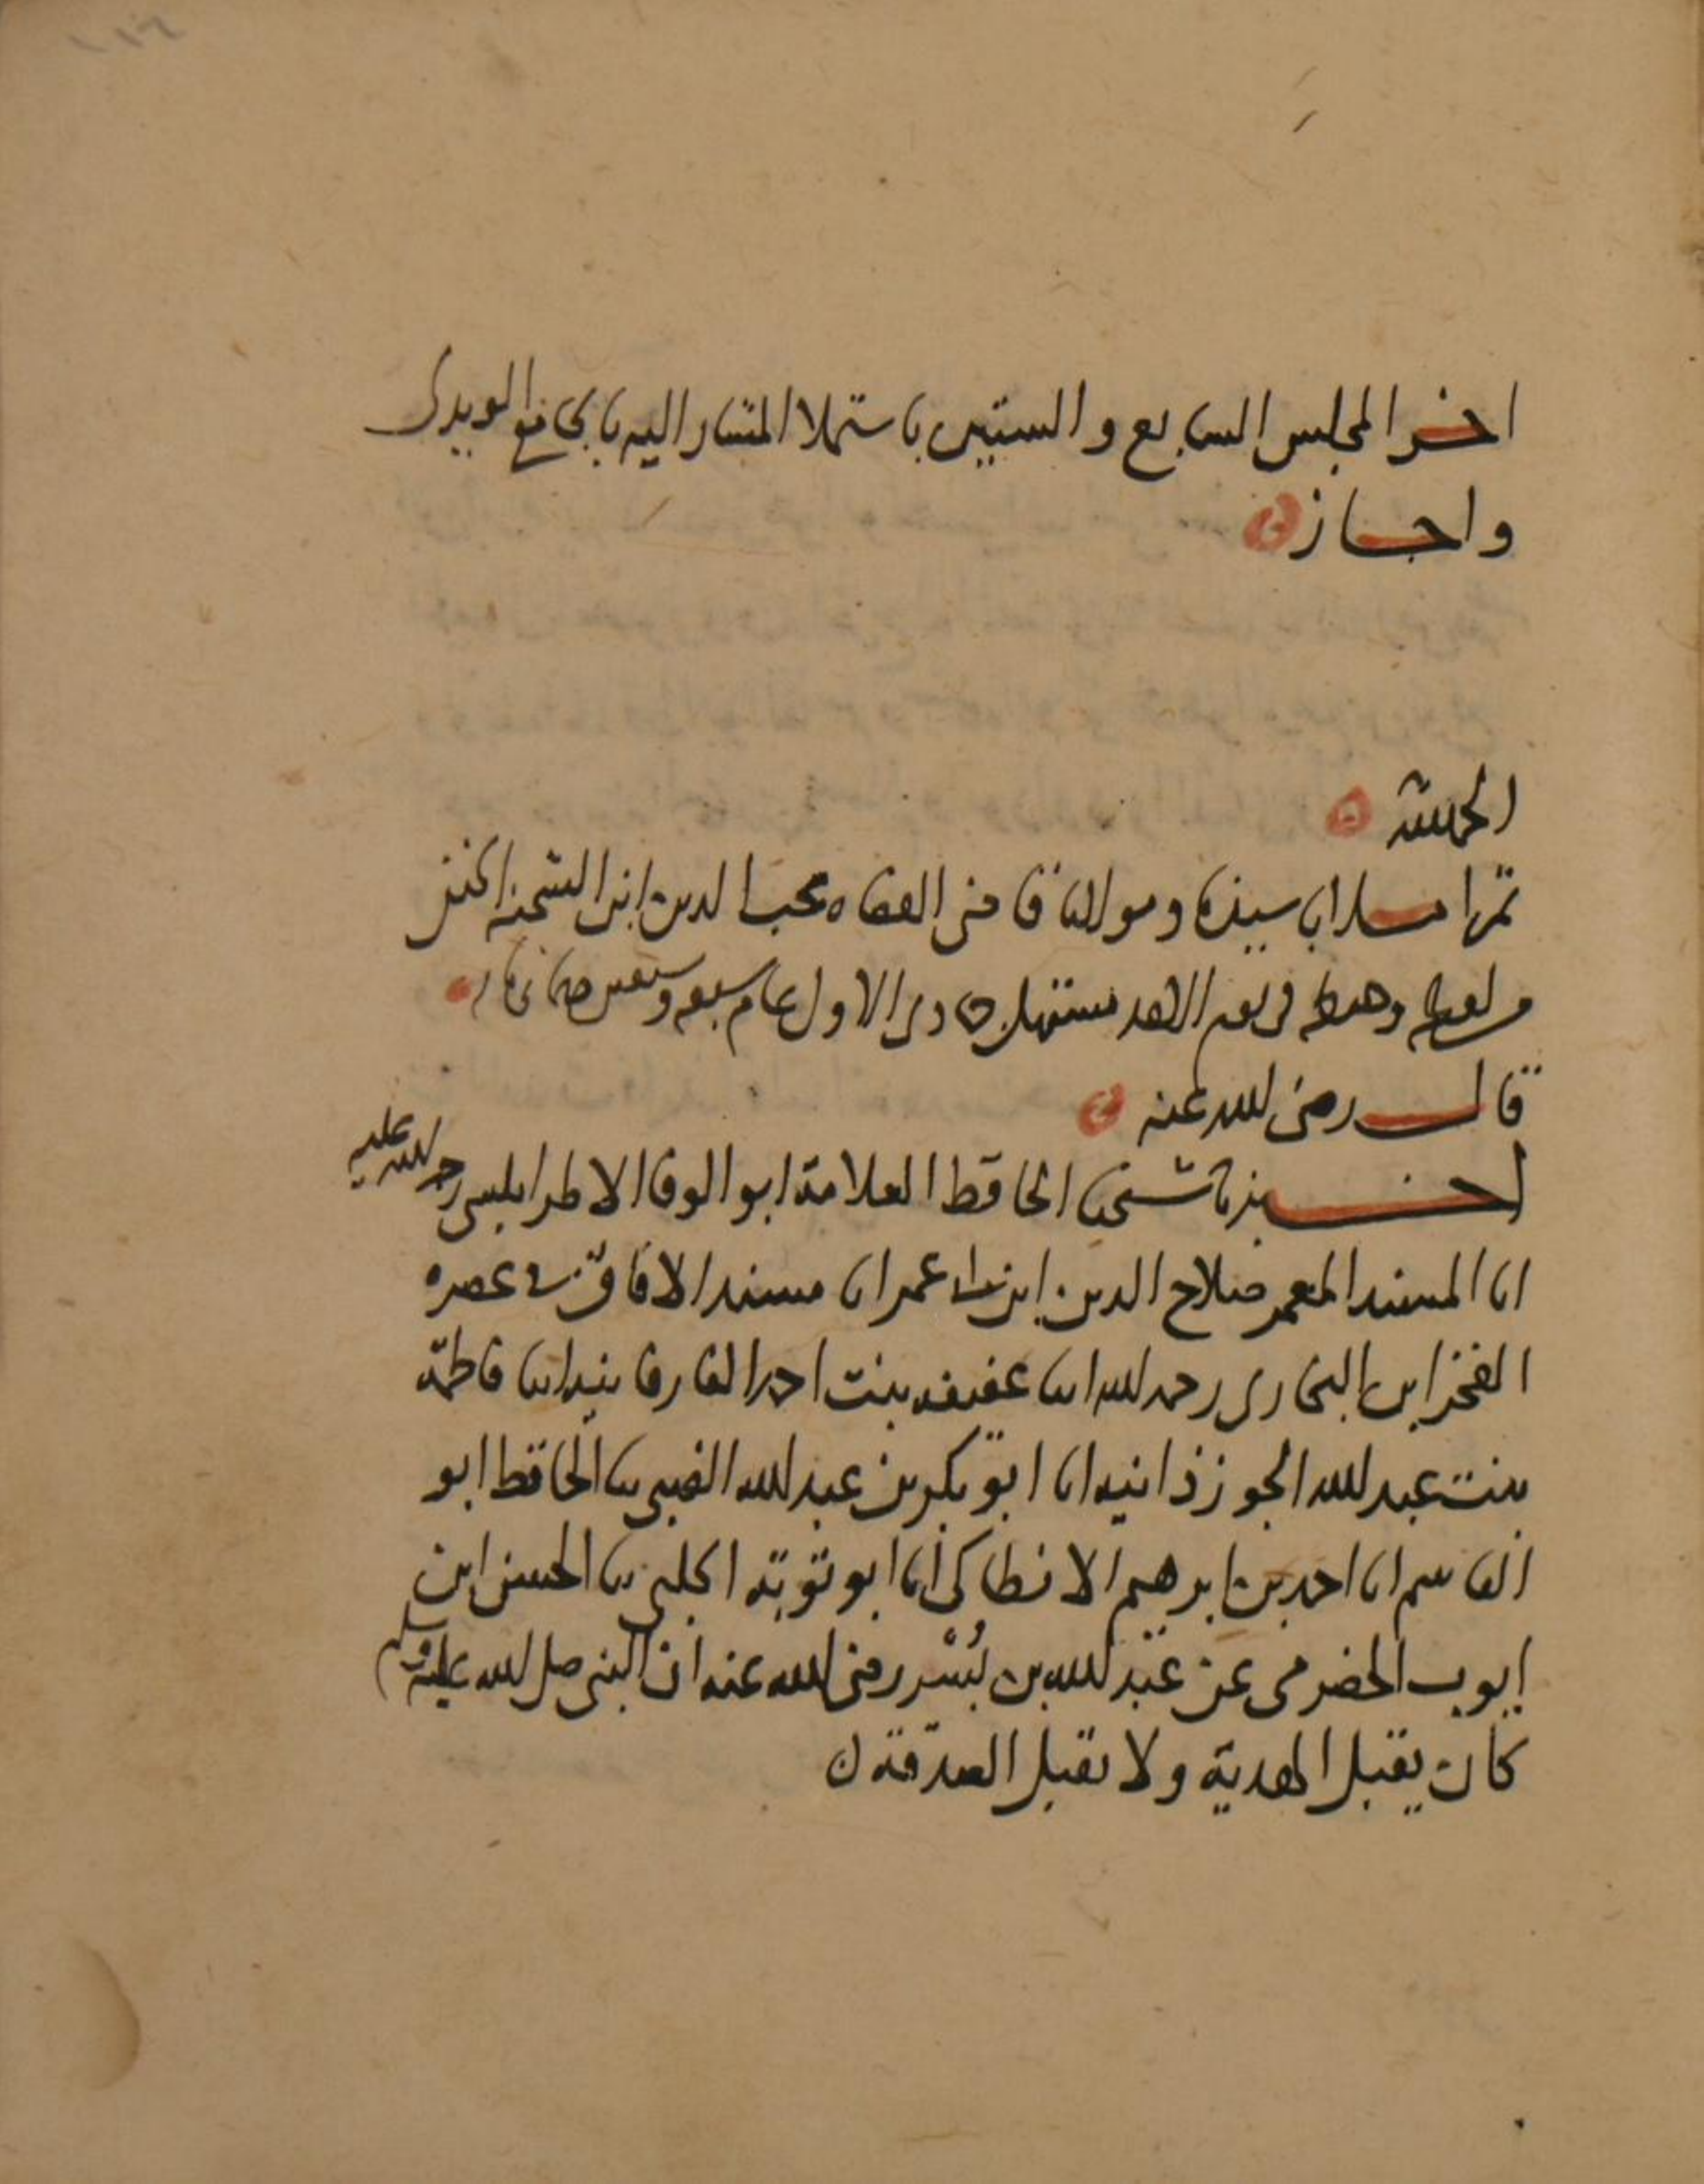 اخر المجلس السابع والستين باستملا المشار اليه بالجامع المويدى
واجاز
الحمد لله
ثم املا سيدنا ومولانا قاضى القضاه محب الدين ابن الشحنه الحنفى
من لفظه وحفظه فى يوم الاحد مستهل جمادى الاول عام سبعه وستين وثمانمايه
قال رضى الله عنه
اخبرنا شيخنا الحافظ العلامة ابو الوفا الاطرابلسى رحمة الله عليه
انا المسند المعمر صلاح الدين ابن ابى عمر انا مسند الافاق فى عصره
الفخر ابن البخارى رحمه الله انبا عفيفه بنت احمد الفارفانيه انبا فاطمة
بنت عبد الله الجوزذانيه انا ابو بكر بن عبد الله الضبى ثنا الحافظ ابو
القاسم انا احمد بن ابرهيم الانطاكى انا ابو توبة الحلبى ثنا الحسن ابن
ايوب الحضرمى عن عبد الله بن بُسْر رضى الله عنه ان النبى صلى الله عليه وسلم
كان يقبل الهدية ولا يقبل الصدقة